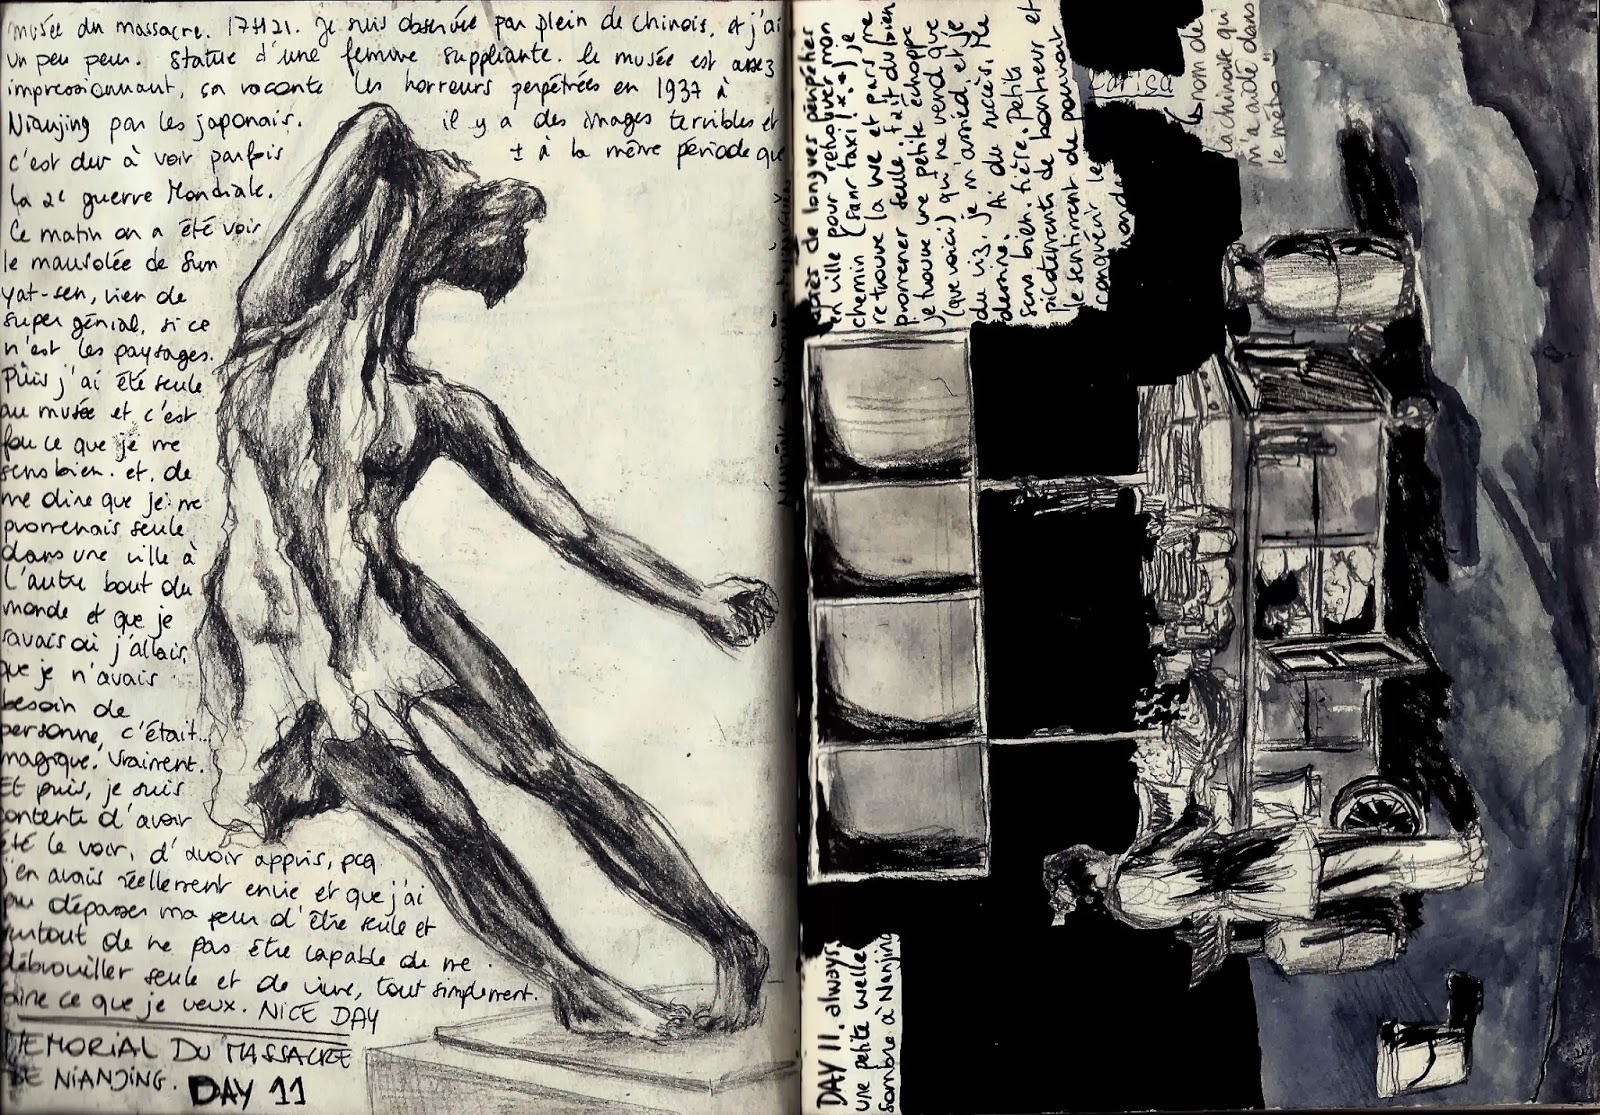 musée du massacre. 17H21. Je suis observée par plein de chinois, et j'ai
un peu peur. Statue d'une femme suppliante. le musée est assez
impressionnant, ça raconte les horreurs perpétrées en 1937 à
Nianjing par les japonais. il y a des images terribles et
c'est dur à voir parfois ± à la même période que
la 2e guerre Mondiale.
Ce matin on a été voir
le mausolée de Sun
Yat-sen, rien de
super génial, si ce
n'est les paysages.
Puis j'ai été seule
au musée et c'est
fou ce que je me
sens bien. et de
me dire que je me
promenais seule
dans une ville à
l'autre bout du
monde et que je
savais où j'allais,
que je n'avais
besoin de
personne, c'était...
magique. Vraiment.
Et puis, je suis
contente d'avoir
été le voir, d'avoir appris, pcq
j'en avais réellement envie et que j'ai
pu dépasser ma peur d'être seule et
surtout de ne pas être capable de me
débrouiller seule et de vivre, tout simplement.
faire ce que je veux. NICE DAY
MEMORIAL DU MASSACRE
DE NIANJING. DAY 11
Après de longues péripéties
en ville pour retrouver mon
chemin (sans taxi! *.*) je
retrouve la we et pars me
promener seule, fait du bien
je trouve une petite échoppe
(que voici) qu'me vend que
du riz, je m'assied, et je
dessine. Ai du succès. Me
sens bien. fière. Petits
picotements de bonheur et
le sentiment de pouvoir
conquérir le
monde
Carisa
le nom de
la chinoise qui
m'a aidé dans
le métro
DAY 11. always.
une petite ruelle
sombre à Nanjing